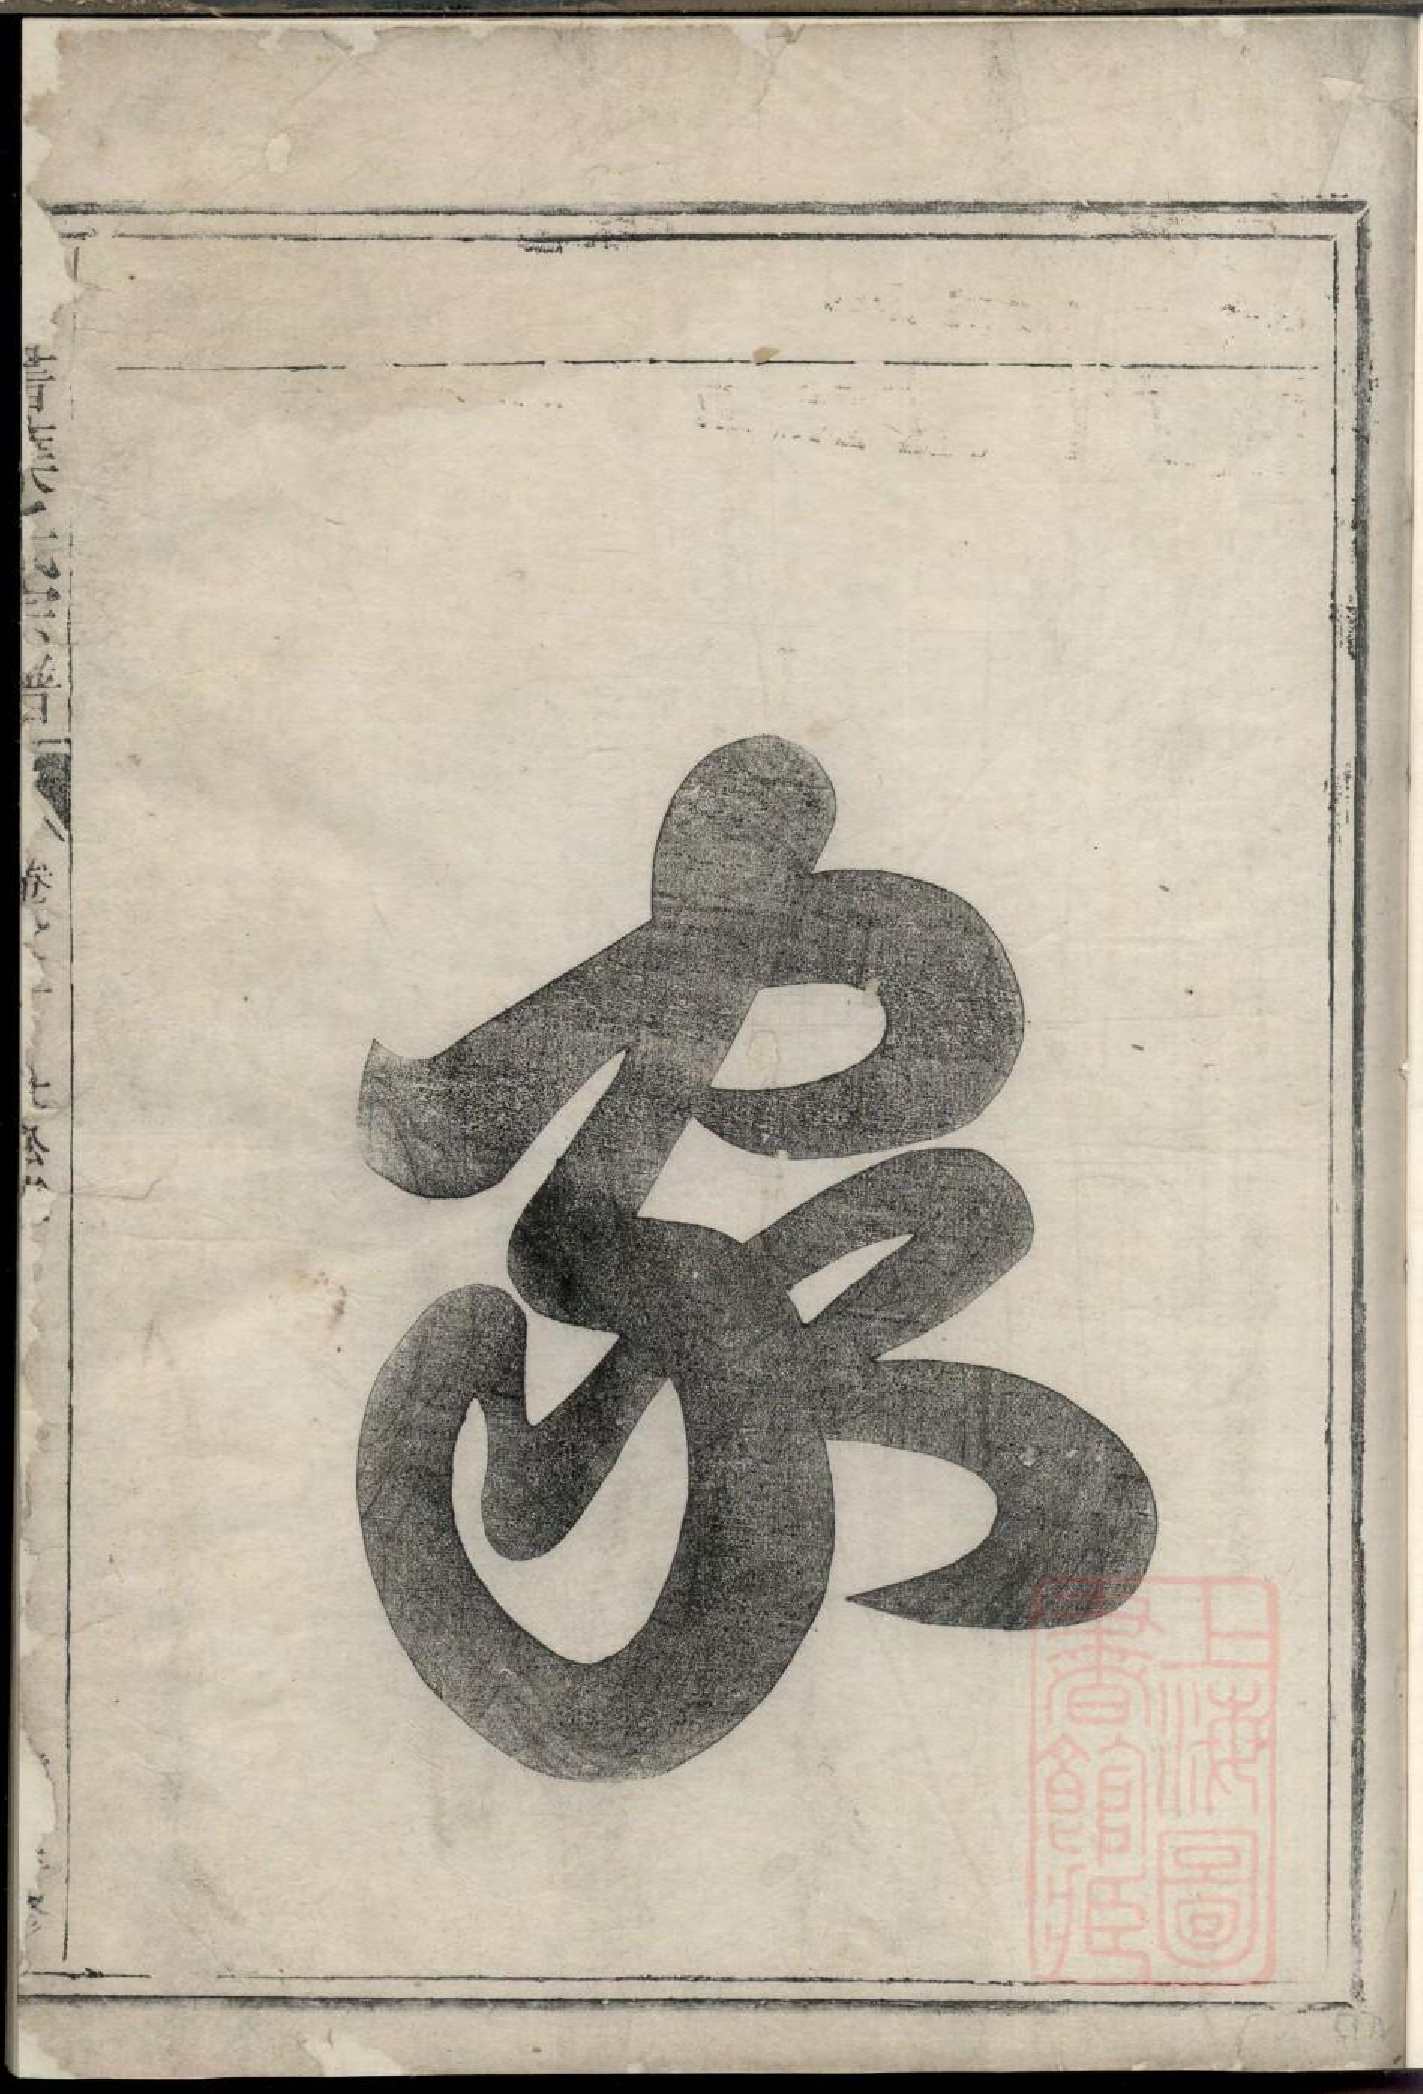 家
上海圖
書館藏